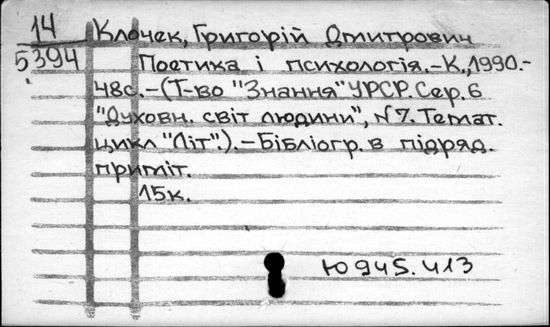 14 Клочек, Григорій Дмитрович
5394 Поетика і психологія.-К.,1990.-
48с.-(Т-во "Знання" УРСР. Сер. 6
"Духовн. світ людини", №7. Темат.
цикл "Літ".).-Бібліогр. в підряд.
приміт.
15к.
Ю 945.413